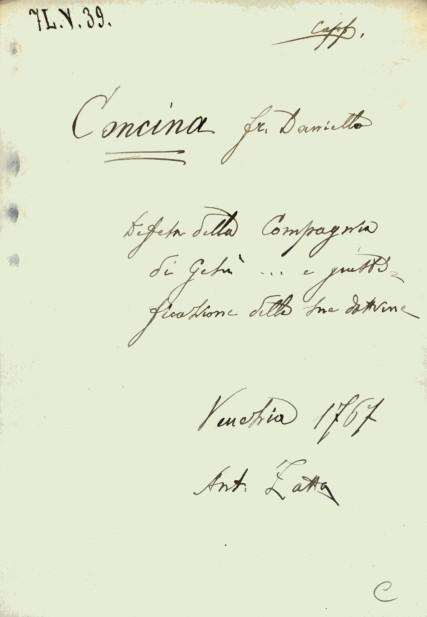 7L.V.39.
Capp.
Concina fr. Daniello
Difesa della Compagnia
di Gesù ... e giusti-
ficazione delle sue dottrine
Venezia 1767
Ant. Zatta
C